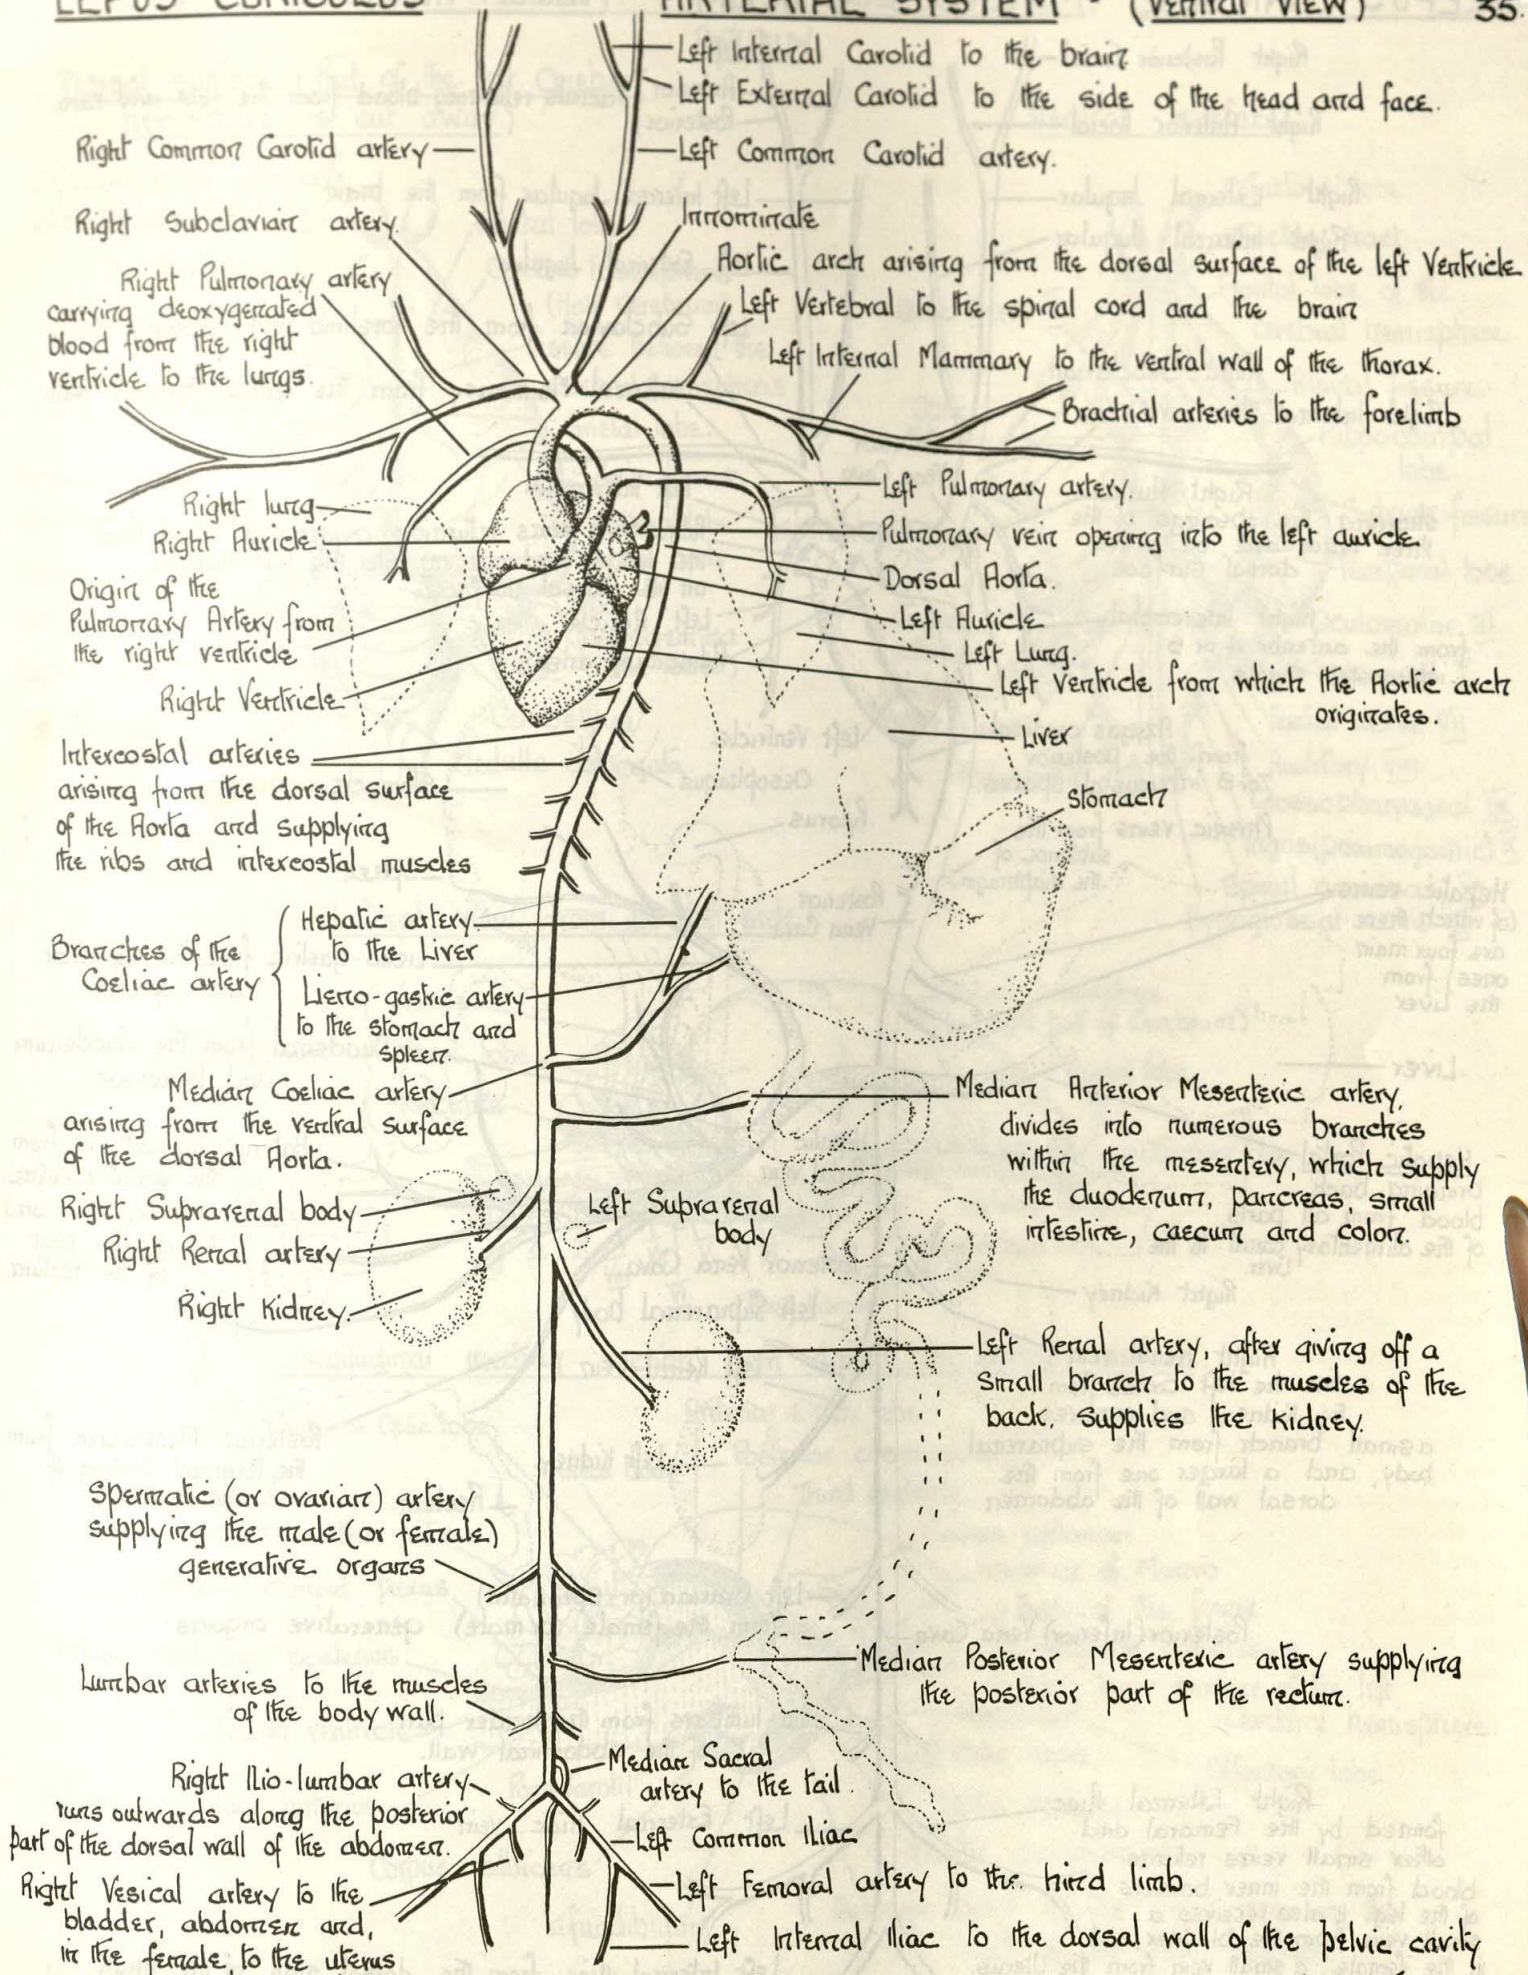 LEPUS CUNICULUS
ARTERIAL SYSTEM - (Ventral View)
35.
Left Internal Carotid to the brain
Left External Carotid to the side of the head and face.
Right Common Carotid artery
Left Common Carotid artery.
Right Subclavian artery.
Innominate
Aortic arch arising from the dorsal surface of the left Ventricle
Right Pulmonary artery
carrying deoxygenated
blood from the right
ventricle to the lungs.
Left Vertebral to the spinal cord and the brain
Left Internal Mammary to the ventral wall of the thorax.
Brachial arteries to the forelimb
Right lung
Left Pulmonary artery.
Right Auricle
Pulmonary vein opening into the left auricle
Origin of the
Pulmonary Artery from
the right ventricle
Dorsal Aorta.
Left Auricle
Left Lung.
Right Ventricle
Left Ventricle from which the Aortic arch
originates.
Liver
Intercostal arteries
arising from the dorsal surface
of the Aorta and supplying
the ribs and intercostal muscles
Stomach
Branches of the
Coeliac artery
Hepatic artery
to the Liver
Lieno-gastric artery
to the stomach and
spleen.
Median Coeliac artery
arising from the ventral surface
of the dorsal Aorta.
Median Anterior Mesenteric artery,
divides into numerous branches
within the mesentery, which supply
the duodenum, pancreas, small
intestine, caecum and colon.
Right Suprarenal body
Left Suprarenal
body
Right Renal artery
Right Kidney.
Left Renal artery, after giving off a
small branch to the muscles of the
back, supplies the kidney.
Spermatic (or ovarian) artery
supplying the male (or female)
generative organs
Median Posterior Mesenteric artery supplying
the posterior part of the rectum.
Lumbar arteries to the muscles
of the body wall.
Median Sacral
artery to the tail.
Right Ilio-lumbar artery
runs outwards along the posterior
part of the dorsal wall of the abdomen.
Left Common Iliac
Right Vesical artery to the
bladder, abdomen and,
in the female, to the uterus
Left Femoral artery to the hind limb.
Left Internal Iliac to the dorsal wall of the pelvic cavity